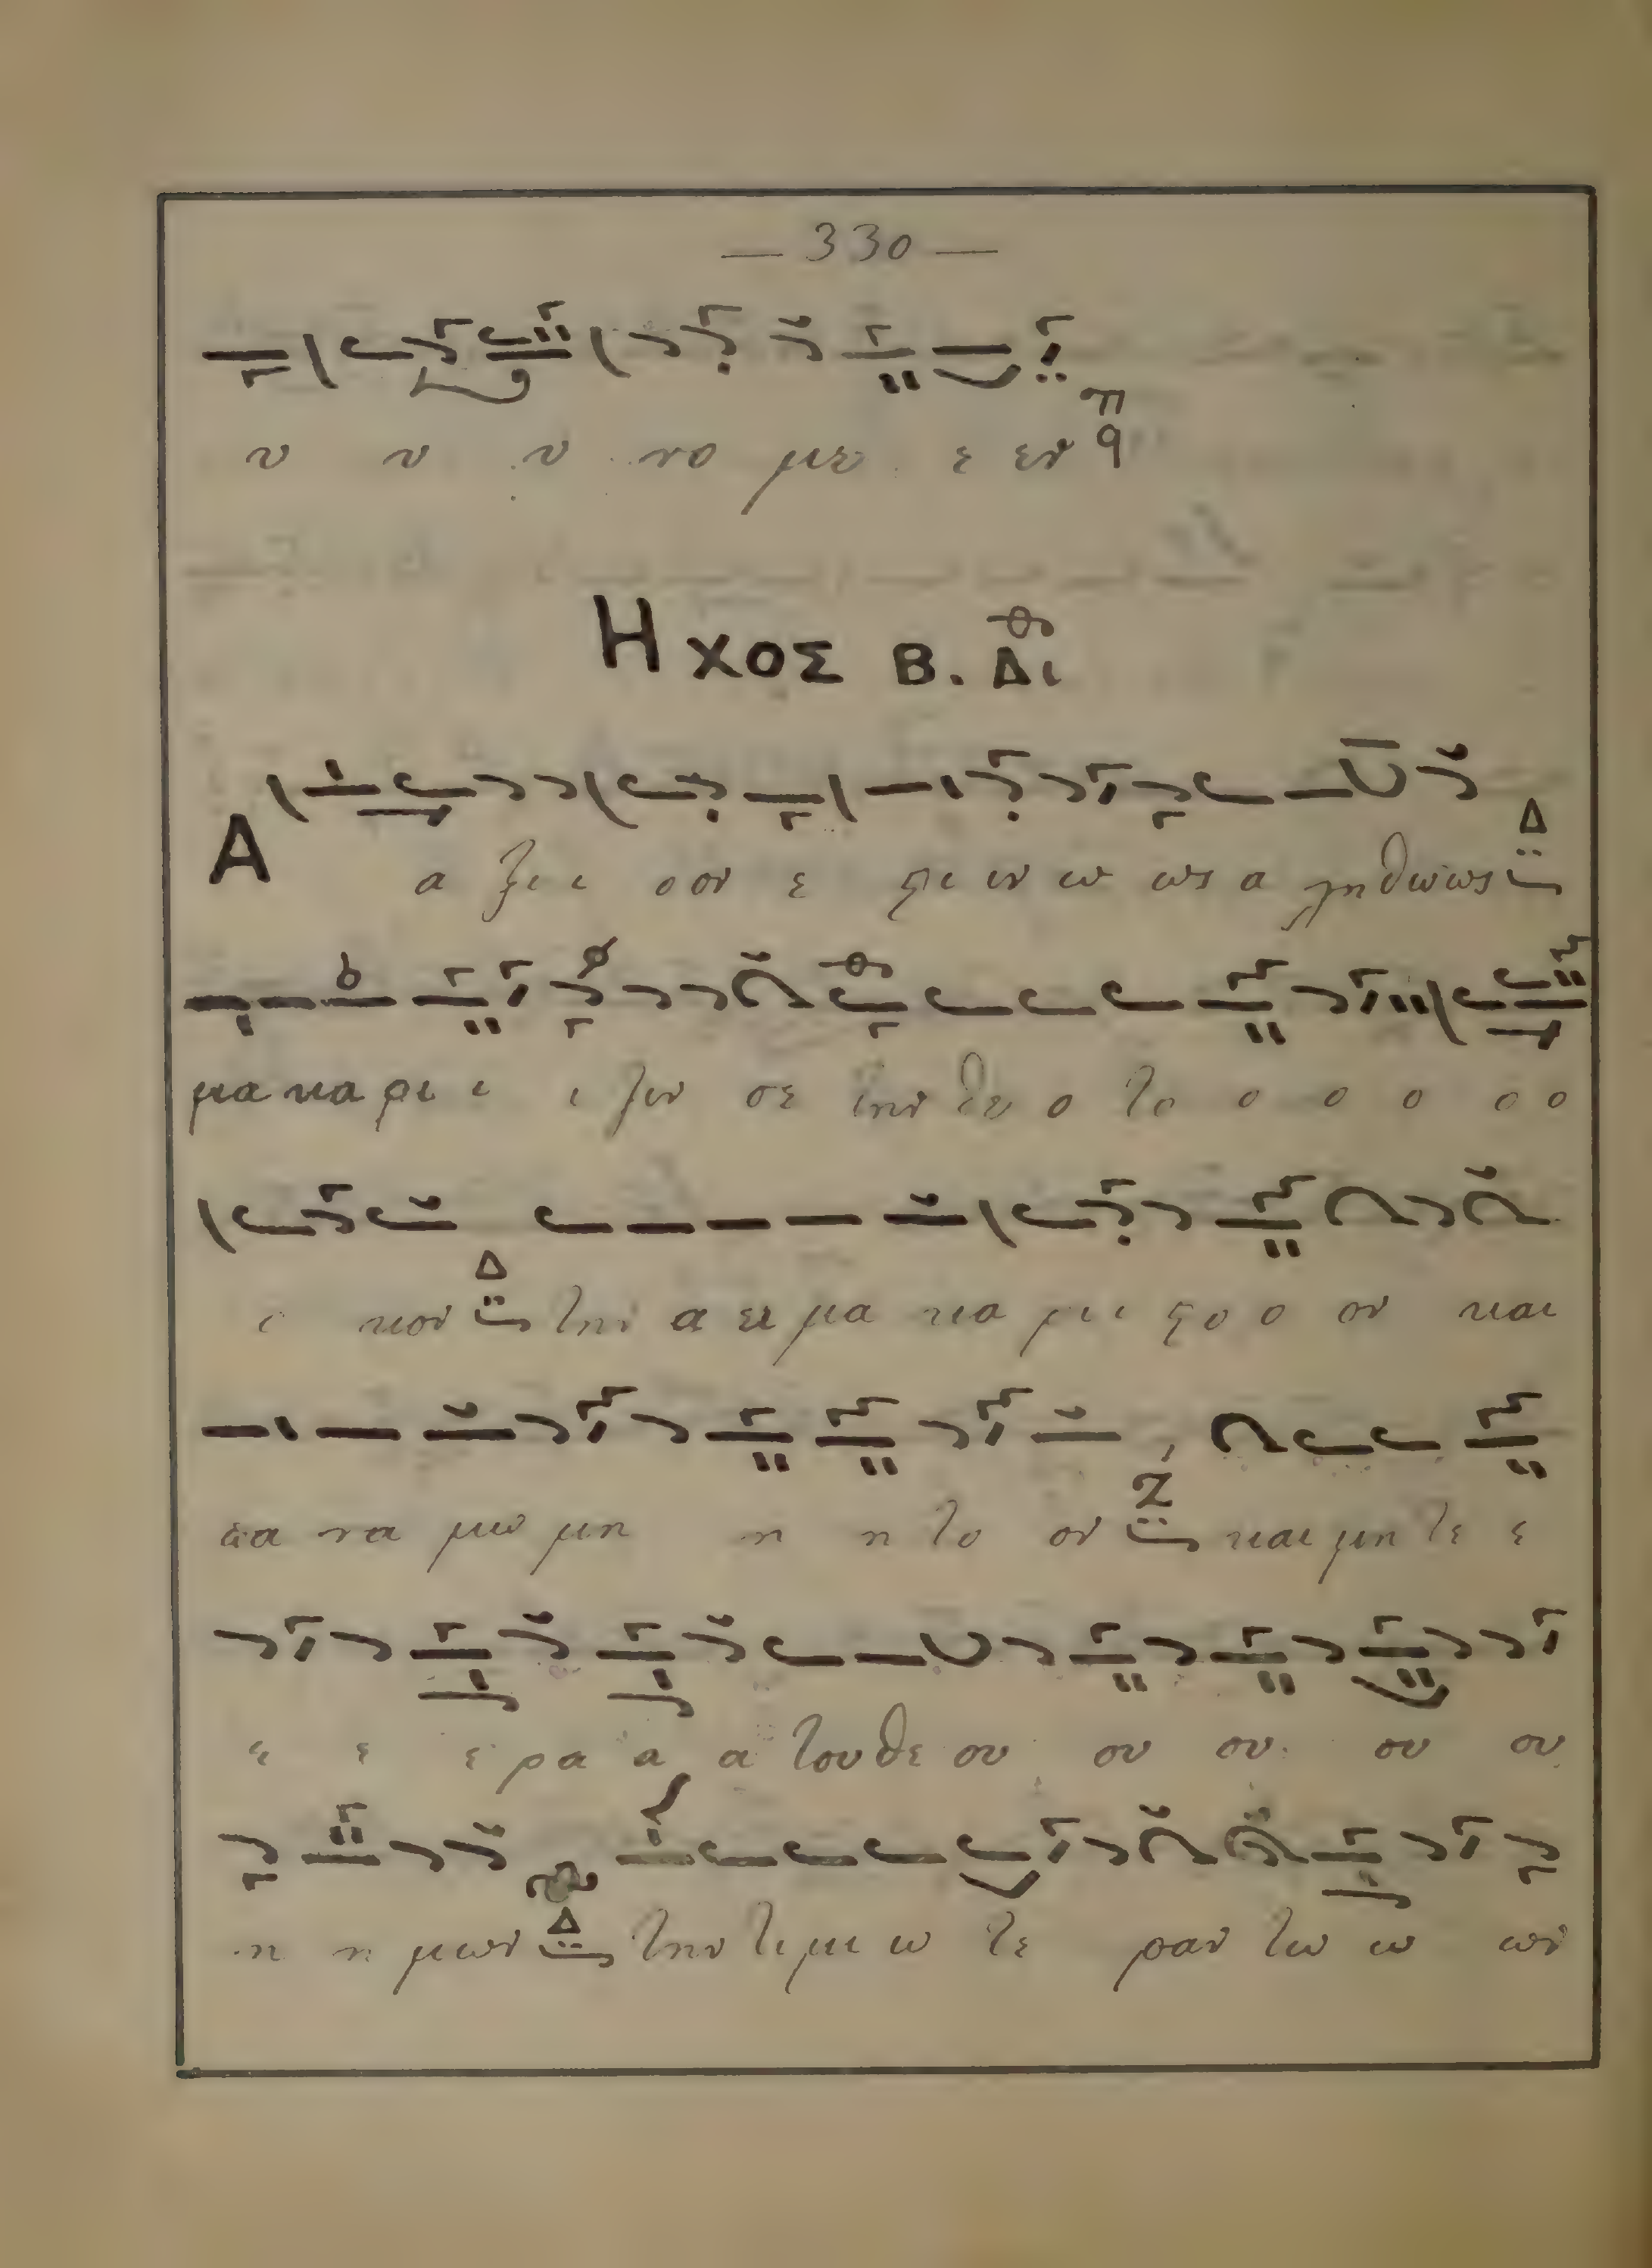 — 330 —
υ υ υ νο με ε εν π q
Ηχος Β. Δι
Α α ξι ι ο ον ε στι ιν ω ως α λη θω ως Δ
μα κα ρι ι ι ζειν σε την θε ο το ο ο ο ο ο
ο κον Δ την α ει μα κα ρι ι στο ο ον και
πα να μω μη η η το ον Ζ και μη τε ε
ε ε ε ρα α α του θε ου ου ου ου ου
η η μων Δ την τι μι ω τε ραν τω ω ων